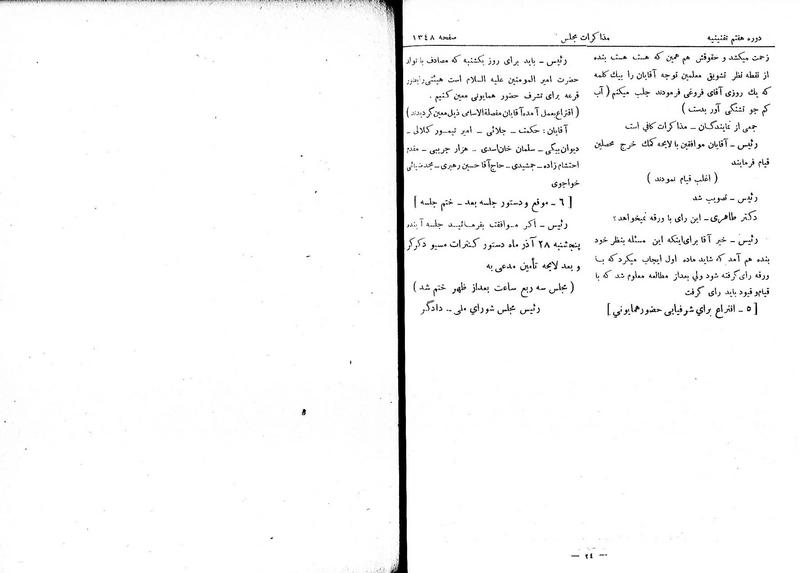 دوره هفتم تقنینیه
مذاکرات مجلس
صفحه ۱۳۴۸
زحمت میکشد و حقوقش هم همین که هست هست بنده
از نقطه نظر تشویق معلمین توجه آقایان را بیك کلمه
که یك روزی آقای فروغی فرمودند جلب میکنم ( آب
کم جو تشنگی آور بدست )
جمعی از نمایندگان ـ مذاکرات کافی است
رئیس ـ آقایان موافقین با لایحه کمك خرج محصلین
قیام فرمایند
( اغلب قیام نمودند )
رئیس ـ تصویب شد
دکتر طاهری ـ این رای با ورقه نمیخواهد؟
رئیس ـ خیر آقا برای اینکه این مسئله بنظر خود
بنده هم آمد که شاید ماده اول ایجاب میکرد که بـا
ورقه رای گرفته شود ولی بعداز مطالعه معلوم شد که با
قیام و قعود باید رای گرفت
[ ۵ ـ اقتراع برای شرفیابی حضور همایونی ]
رئیس ـ باید برای روز یکشنبه که مصادف با تولد
حضرت امیر المومنین علیه السلام است هیئتی را بحضور
قرعه برای تشرف حضور همایونی معین کنیم .
( اقتراع بعمل آمده آقایان مفصلة الاسامی ذیل معین گردیدند )
آقایان : حکمت ـ جلائی ـ امیر تیمـور کلالی ـ
دیوان بیگی ـ سلمان خان اسدی ـ هزار جریبی ـ مقدم
احتشام زاده ـ جمشیدی ـ حاج آقا حسین رهبری ـ مجدضیائی
خواجوی
[ ۶ ـ موقع و دستور جلسه بعد ـ ختم جلسه ]
رئیس ـ اگر مـوافقت بفرمـائیـد جلسه آینده
پنجشنبه ۲۸ آذر ماه دستور کنترات مسیو دکرکر
و بعد لایحه تأمین مدعی به
( مجلس سه ربع ساعت بعداز ظهر ختم شد )
رئیس مجلس شورای ملی ـ دادگر
— ۲۴ —